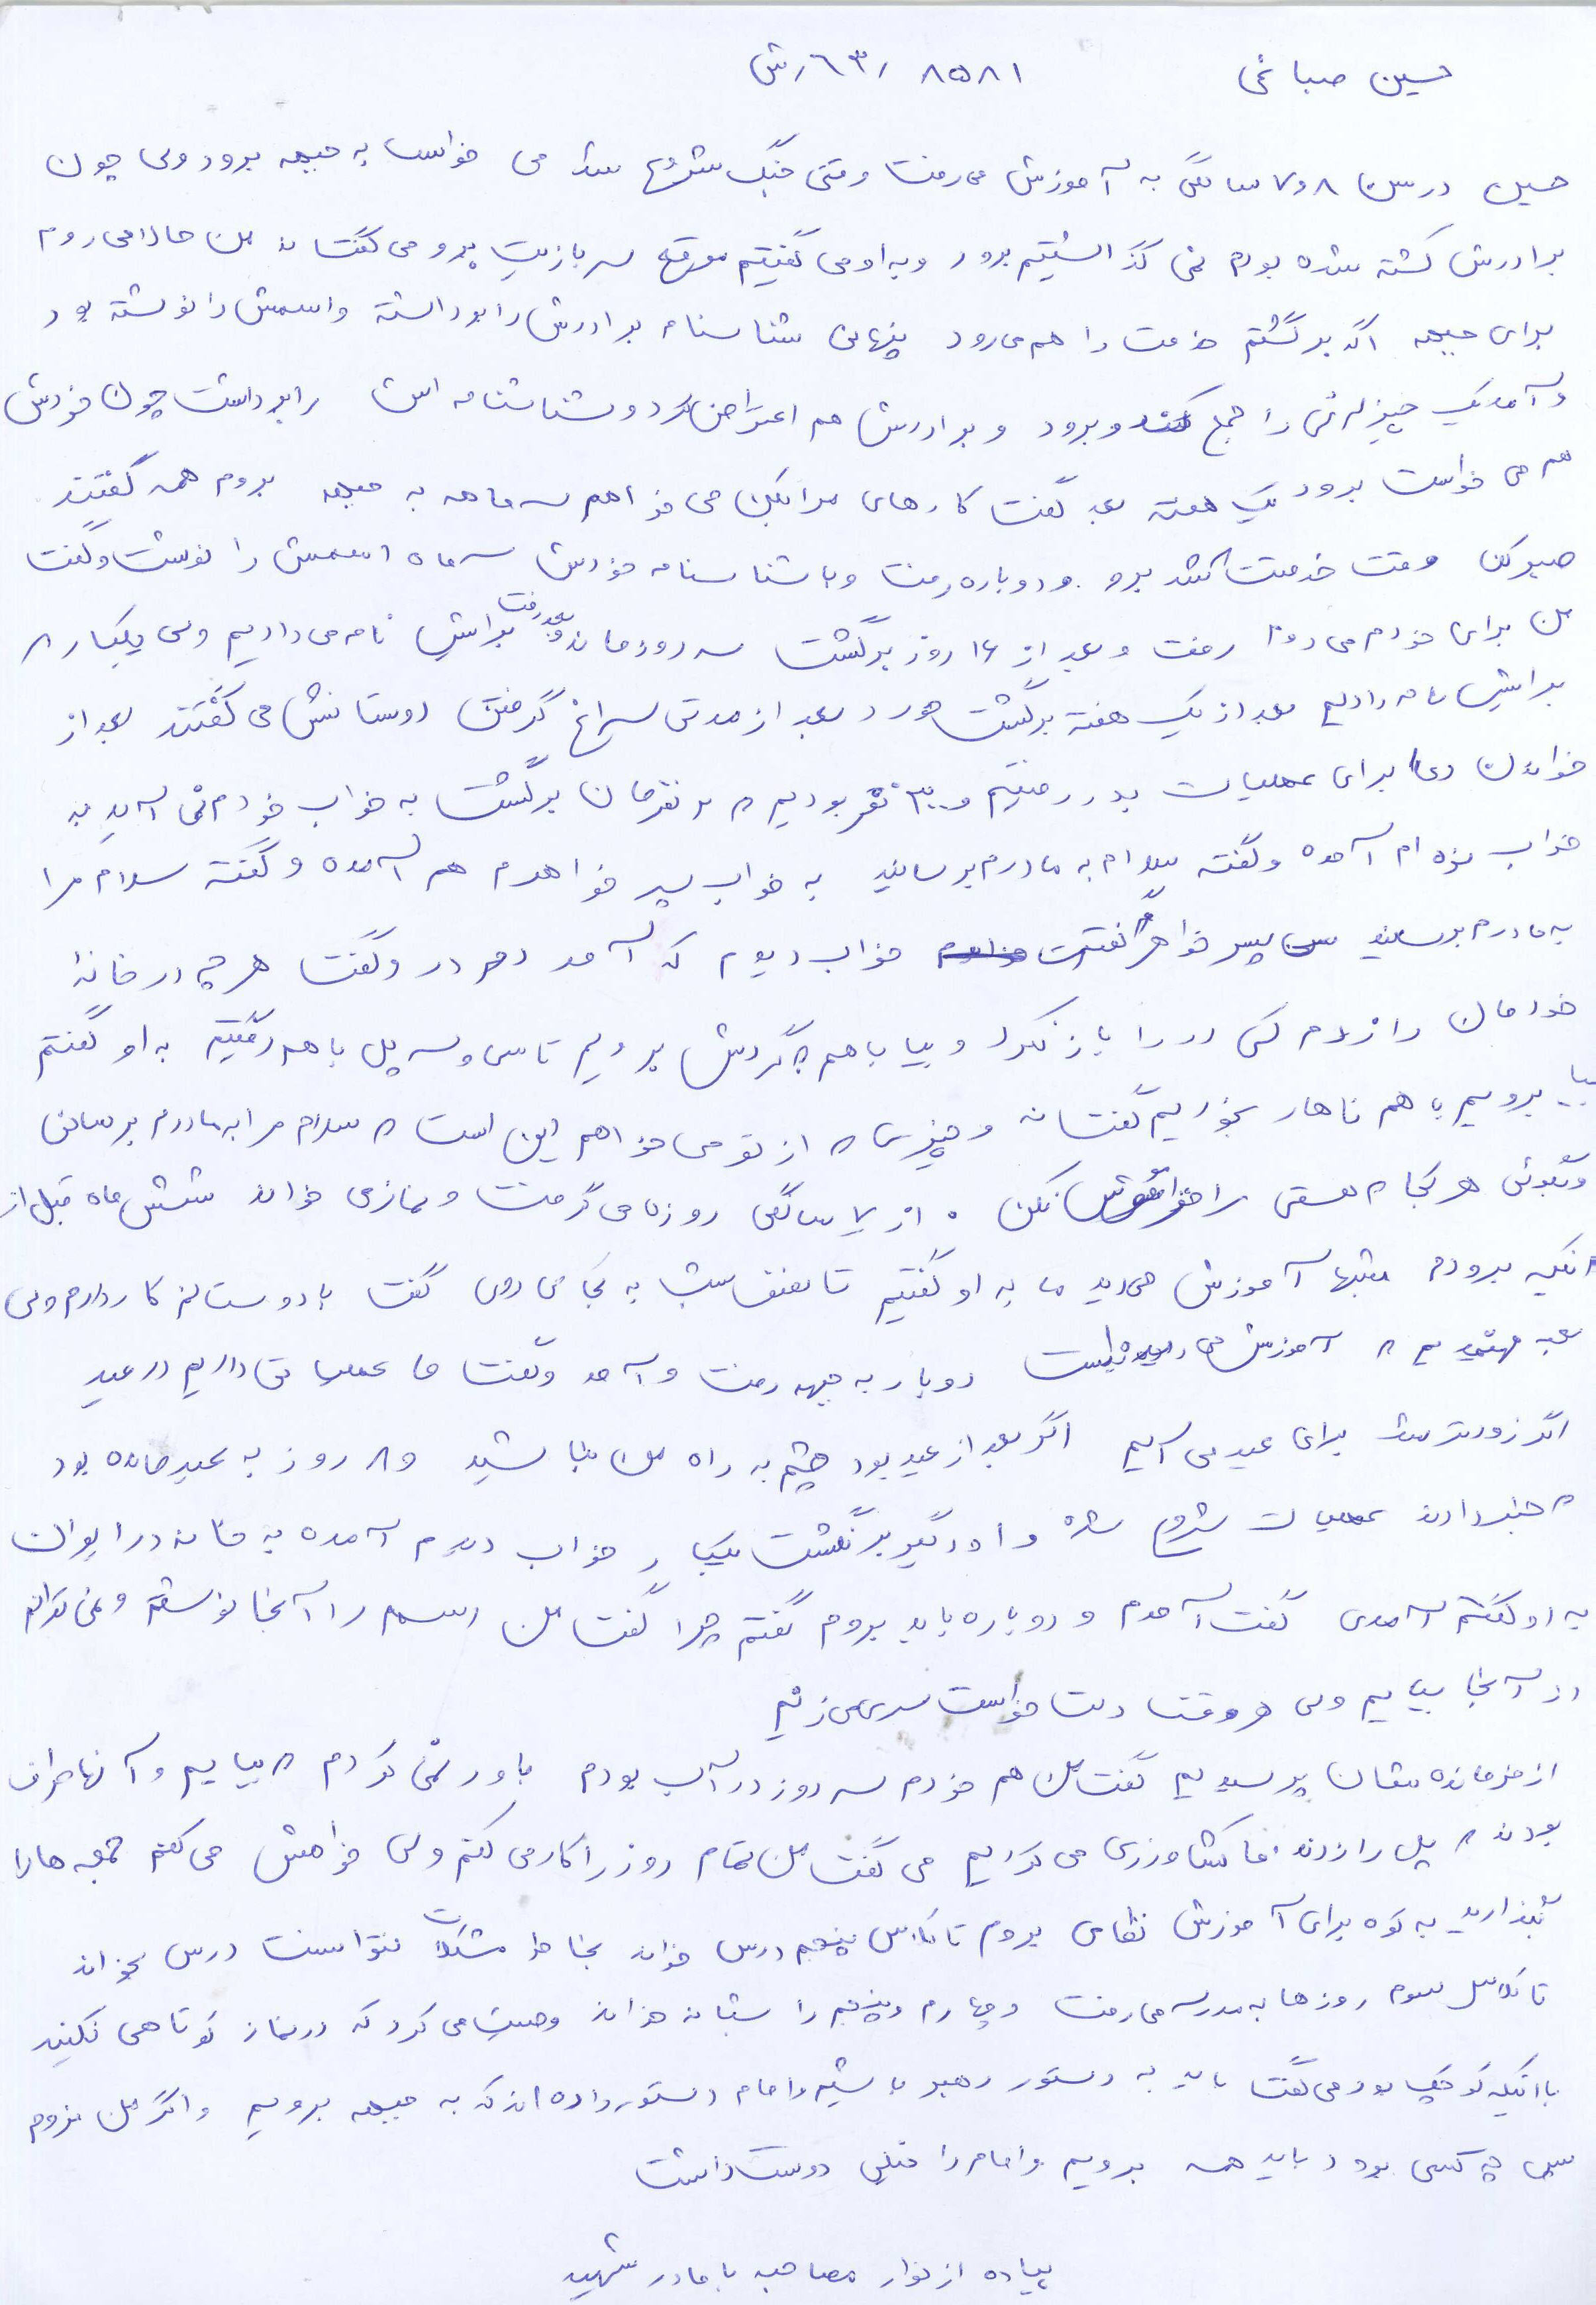 حسین صباغی ۸۵۸۱ / ۶۳ / ش
حسین در سن ۸ و ۷ سالگی به آموزش می رفت وقتی جنگ شروع شد می خواست به جبهه برود ولی چون
برادرش کشته شده بود نمی گذاشتیم برود و به او می گفتیم موقع سربازیت برو می گفت نه من حالا می روم
برای جبهه اگر برگشتم خدمت را هم می رود پنهانی شناسنامه برادرش را برداشته و اسمش را نوشته بود
و آمد یک چیزهائی را جمع کند و برود و برادرش هم اعتراض کرد و شناسنامه اش را برداشت چون خودش
هم می خواست برود یک هفته بعد گفت کارهای مرا بکن می خواهم سه ماهه به جبهه بروم همه گفتند
صبر کن وقت خدمتت شد برو و دوباره رفت و با شناسنامه خودش سه ماه اسمش را نوشت و گفت
من برای خودم می روم رفت و بعد از ۱۶ روز برگشت سه روز ماند و بعد رفت برایش نامه می دادیم ولی یکبار ۸
برایش نامه دادیم بعد از یک هفته برگشت خورد بعد از مدتی سراغ گرفتن دوستانش می گفتند بعد از
خواندن دعا برای عملیات بدر رفتیم و ۳۰۰ نفر بودیم ۸ نفرمان برگشت به خواب خودم نمی آید به
خواب نوه ام آمده و گفته سلام به مادرم برسانید به خواب پسر خواهرم هم آمده و گفته سلام مرا
به مادرم برسانید پسر خواهرم گفت خواب دیدم که آمد دم در و گفت هر چه در خانه
خودمان را زدم کسی در را باز نکرد و بیا با هم گردش برویم تا سی و سه پل با هم رفتیم به او گفتم
بیا برویم با هم ناهار بخوریم گفت نه و چیزی ۸ از تو می خواهم این است ۸ سلام مرا به مادرم برسانی
و بگوئی هر کجا ۸ هستی را فراموش نکن . از ۷ سالگی روزه می گرفت و نماز می خواند شش ماه قبل از
اینکه برود شبها آموزش می دید ما به او گفتیم تا نصف شب به کجا می روی گفت با دوستانم کار دارم ولی
بعد فهمیدیم ۸ آموزش می دیده است دو بار به جبهه رفت و آمد و گفت ما عملیاتی داریم در عید
اگر زودتر شد برای عید می آئیم اگر بعد از عید بود چشم به راه من نباشید و ۸ روز به عید مانده بود
۸ خبر دادند عملیات شروع شده و او دیگر برنگشت یکبار خواب دیدم آمده به خانه در ایوان
به او گفتم آمدی گفت آمدم و دوباره باید بروم گفتم چرا گفت من اسمم را آنجا نوشته و نمی توانم
از آنجا بیایم ولی هر وقت دلت خواست سری می زنم
از فرمانده شان پرسیدیم گفت من هم خودم سه روز در آب بودم باور نمی کردم ۸ بیایم و آنها طرف
بودند ۸ پل را زدند . ما کشاورزی می کردیم می گفت من تمام روز را کار می کنم ولی خواهش می کنم جمعه ها را
بگذارید به کوه برای آموزش نظامی بروم تا کلاس پنجم درس خواند بخاطر مشکلات نتوانست درس بخواند
تا کلاس سوم روزها به مدرسه می رفت و چهارم و پنجم را شبانه خواند وصیت می کرد که در نماز کوتاهی نکنید
با اینکه کوچک بود می گفت باید به دستور رهبر باشیم و امام دستور داده اند که به جبهه برویم و اگر من نروم
پس چه کسی برود باید همه برویم و امام را خیلی دوست داشت
پیاده از نوار مصاحبه با مادر شهید